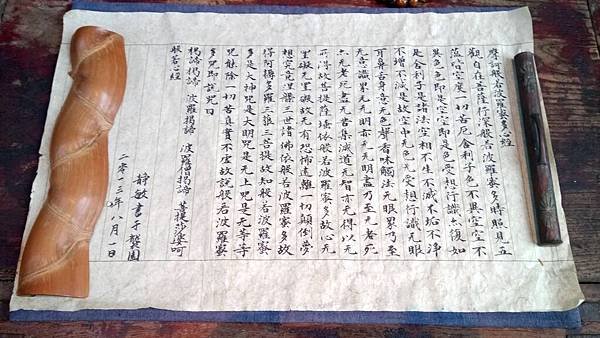 摩訶般若波羅蜜多心經
觀自在菩薩行深般若波羅蜜多時照見五
蘊皆空度一切苦厄舍利子色不異空空不
異色色即是空空即是色受想行識亦復如
是舍利子是諸法空相不生不滅不垢不淨
不增不減是故空中无色无受想行識无眼
耳鼻舌身意无色聲香味觸法无眼界乃至
无意識界无无明亦无无明盡乃至无老死
亦无老死盡无苦集滅道无智亦无得以无
所得故菩提薩埵依般若波羅蜜多故心无
罣礙无罣礙故无有恐怖遠離一切顛倒夢
想究竟涅槃三世諸佛依般若波羅蜜多故
得阿耨多羅三藐三菩提故知般若波羅蜜
多是大神咒是大明咒是无上咒是无等等
咒能除一切苦真實不虛故說般若波羅蜜
多咒即說咒曰
揭諦揭諦 波羅揭諦 波羅僧揭諦 菩提莎婆呵
般若心經
靜敏書于園
二〇一三年八月一日